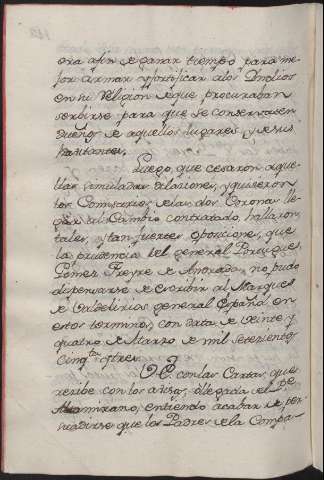 era afin de ganar tiempo para me-
jor armar, y fortificar a los Yndios
en su Religion de que procuraban
serbirse para que se conservasen
dueños de aquellos lugares, y de sus
havitantes.
Luego, que cesaron aque-
llas simuladas dilaciones, y quisieron
los Comisarios de las dos Coronas lle-
gar al Cambio contratado, hallaron
tales, y tan fuertes oposiciones, que
la prudencia del general Portugues,
Gomez Freyre de Andrada, no pudo
dispensarse de escribir al Marques
de Valdelirios general Español en
estos terminos, con data de veinte y
quatro de Marzo de mil setecientos
cinq.ta y tres.
V.E. con las Cartas, que
recibe con los avisos, y llegada del P.e
Altamirano, entiendo acabar de per-
suadirse que los Padres de la Compa-